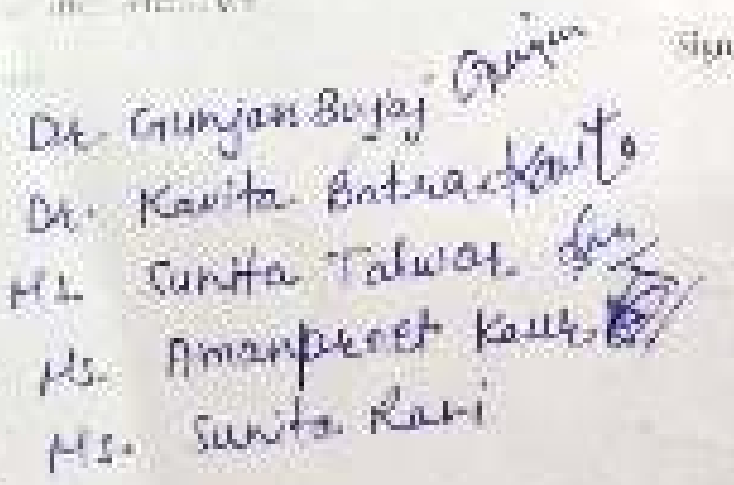 Dr. Gunjan Bajaj Gunjan
Dr. Kavita Batra Kavita
Ms. Sunita Talwar
Ms. Amanpreet Kaur
Ms. Sunita Rani